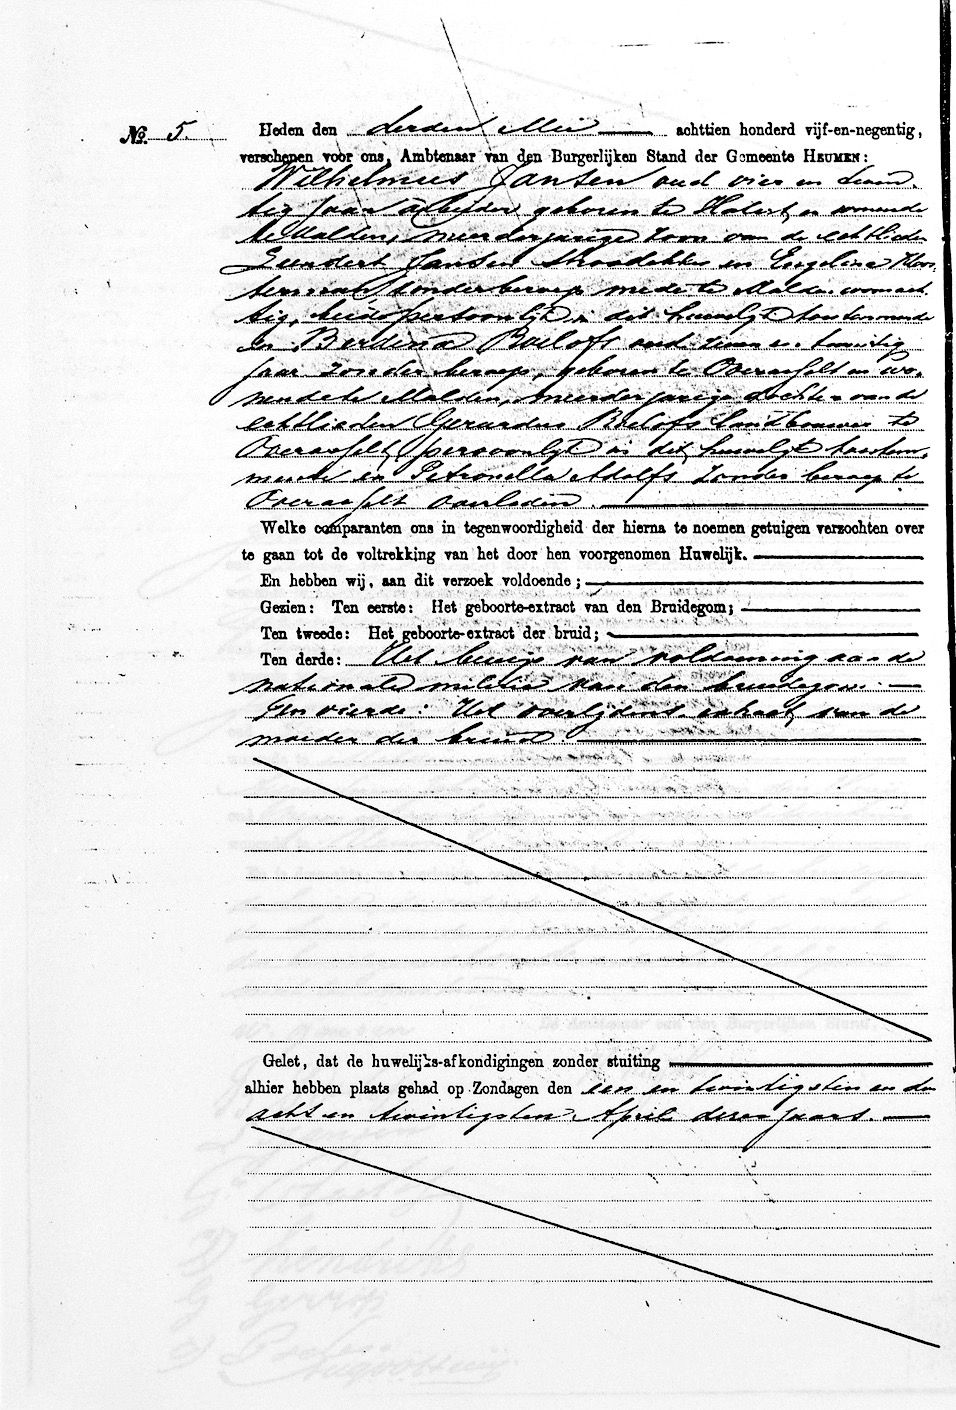 No. 5. Heden den derden Mei achttien honderd vijf-en-negentig,
verschenen voor ons, Ambtenaar van den Burgerlijken Stand der Gemeente HEUMEN:
Wilhelmus Jansen oud vier en twin-
tig jaar arbeider geboren te Hatert en wonende
te Malden, meerderjarige zoon van de echtlieden
Jansen en Engelina
zonder beroep mede te Malden woonach-
tig, beide persoonlijk in dit huwelijk toestemmende
en Berdina Roelofs oud twee en twintig
jaar zonder beroep, geboren te Overasselt en wo-
nende te Malden, meerderjarige dochter van de
echtlieden Gerardus Roelofs landbouwer te
Overasselt, persoonlijk in dit huwelijk toestem-
mende en Petronella Adolfs zonder beroep te
Overasselt overleden.
Welke comparanten ons in tegenwoordigheid der hierna te noemen getuigen verzochten over
te gaan tot de voltrekking van het door hen voorgenomen Huwelijk.
En hebben wij, aan dit verzoek voldoende;
Gezien: Ten eerste: Het geboorte-extract van den Bruidegom;
Ten tweede: Het geboorte-extract der bruid;
Ten derde: Het bewijs van voldoening aan de
nationale militie van den bruidegom.
Ten vierde: Het overlijdens extract van de
moeder der bruid
Gelet, dat de huwelijks-afkondigingen zonder stuiting
alhier hebben plaats gehad op Zondagen den een en twintigsten en den
acht en twintigsten April dezes jaars.